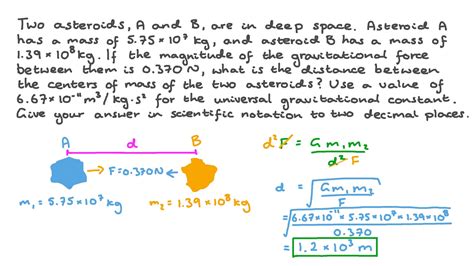 Two asteroids, A and B, are in deep space. Asteroid A
has a mass of 5.75 × 10⁷ kg, and asteroid B has a mass of
1.39 × 10⁸ kg. If the magnitude of the gravitational force
between them is 0.370 N, what is the distance between
the centers of mass of the two asteroids? Use a value of
6.67 × 10⁻¹¹ m³/kg·s² for the universal gravitational constant.
Give your answer in scientific notation to two decimal places.
A d B
F = 0.370 N
m₁ = 5.75 × 10⁷ kg m₂ = 1.39 × 10⁸ kg
d² F / F = G m₁ m₂ / d² F
d = √(G m₁ m₂ / F)
= √(6.67×10⁻¹¹ × 5.75×10⁷ × 1.39×10⁸ / 0.370)
= 1.2 × 10³ m